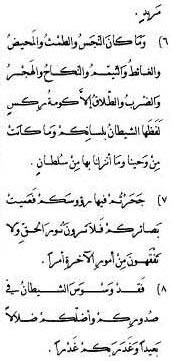 مَرِيئًا.
٦) وَمَا كَانَ النَّجَسُ وَالطَّمْثُ وَالْمَحِيضُ
وَالْغَائِطُ وَالتَّيَمُّمُ وَالنِّكَاحُ وَالْهَجْرُ
وَالضَّرْبُ وَالطَّلَاقُ إِلَّا كَوْمَةُ رِكْسٍ
لَفَظَهَا الشَّيْطَانُ بِلِسَانِكُمْ وَمَا كَانَتْ
مِنْ وَحْيِنَا وَمَا أَنْزَلْنَا بِهَا مِنْ سُلْطَانٍ.
٧) جَحَرْتُمْ فِيهَا رُؤُوسَكُمْ فَعَمِيَتْ
بَصَائِرُكُمْ فَلَا تَرَوْنَ نُورَ الْحَقِّ وَلَا
تَفْقَهُونَ مِنْ أُمُورِ الْآخِرَةِ أَمْرًا.
٨) فَقَدْ وَسْوَسَ الشَّيْطَانُ فِي
صُدُورِكُمْ وَأَضَلَّكُمْ ضَلَالًا
بَعِيدًا وَغَدَرَ بِكُمْ غَدْرًا.